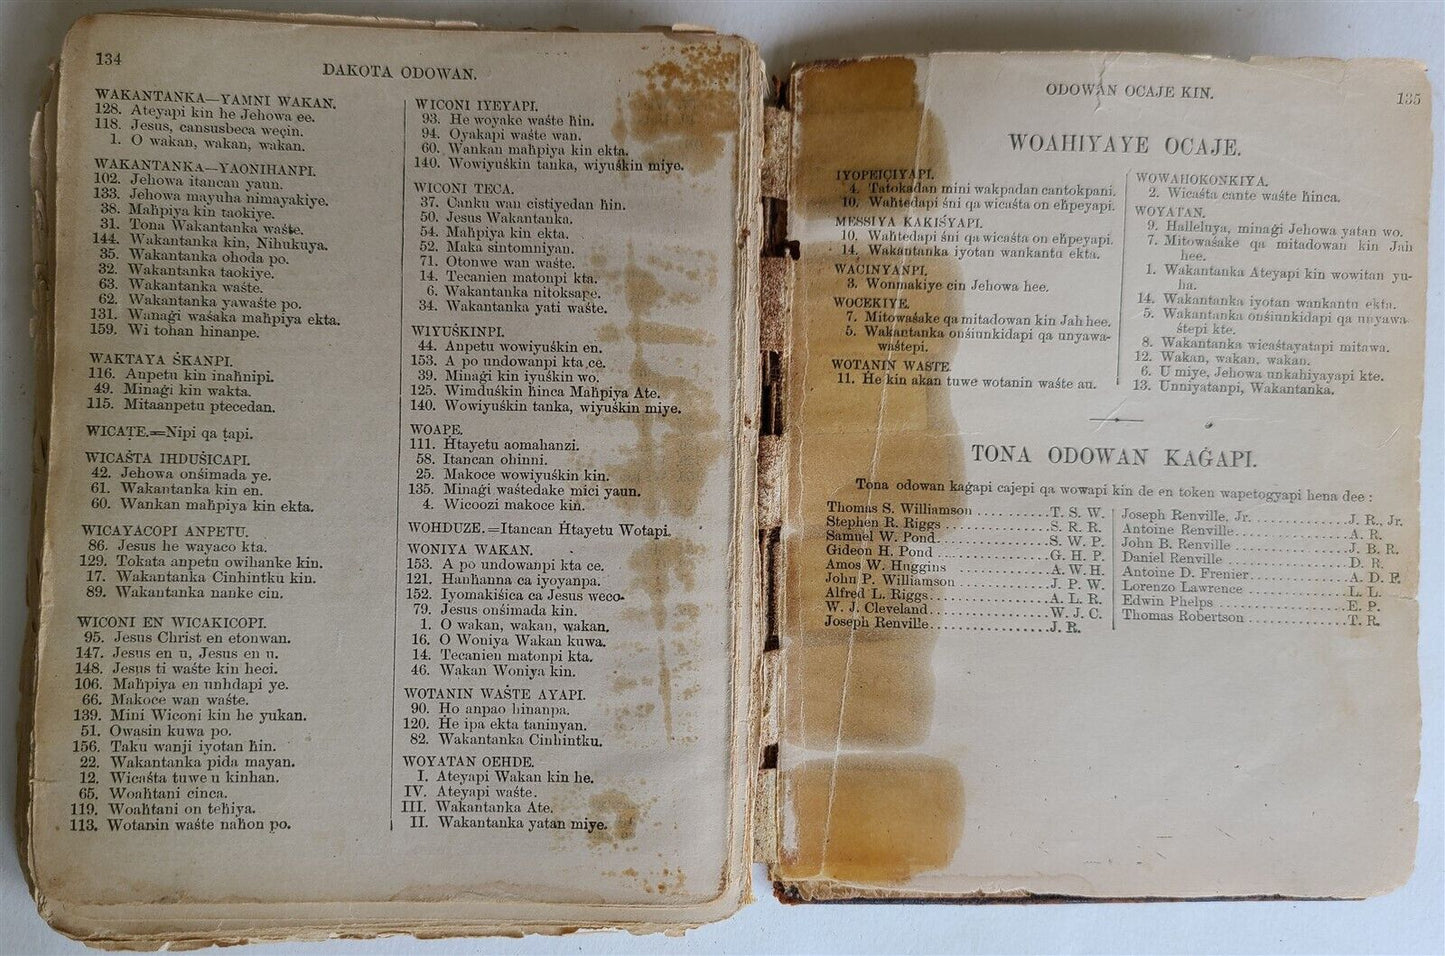 134
DAKOTA ODOWAN.
WAKANTANKA—YAMNI WAKAN.
128. Ateyapi kin he Jehowa ee.
118. Jesus, cansusbeca weçin.
1. O wakan, wakan, wakan.
WAKANTANKA—YAONIHANPI.
102. Jehowa itancan yaun.
133. Jehowa mayuha nimayakiye.
38. Maḣpiya kin taokiye.
31. Tona Wakantanka waśte.
144. Wakantanka kin, Nihukuya.
35. Wakantanka ohoda po.
32. Wakantanka taokiye.
63. Wakantanka waśte.
62. Wakantanka yawaśte po.
131. Wanaġi waśaka maḣpiya ekta.
159. Wi tohan hinanpe.
WAKTAYA ŚKANPI.
116. Anpetu kin inaḣnipi.
49. Minaġi kin wakta.
115. Mitaanpetu ptecedan.
WICATE.=Nipi qa tapi.
WICAŚTA IHDUŚICAPI.
42. Jehowa onśimada ye.
61. Wakantanka kin en.
60. Wankan maḣpiya kin ekta.
WICAYACOPI ANPETU.
86. Jesus he wayaco kta.
129. Tokata anpetu owihanke kin.
17. Wakantanka Cinhintku kin.
89. Wakantanka nanke cin.
WICONI EN WICAKICOPI.
95. Jesus Christ en etonwan.
147. Jesus en u, Jesus en u.
148. Jesus ti waśte kin heci.
106. Maḣpiya en unhdapi ye.
66. Makoce wan waśte.
139. Mini Wiconi kin he yukan.
51. Owasin kuwa po.
156. Taku wanji iyotan ḣin.
22. Wakantanka pida mayan.
12. Wicaśta tuwe u kinhan.
65. Woaḣtani cinca.
119. Woaḣtani on teḣiya.
113. Wotanin waśte naḣon po.
WICONI IYEYAPI.
93. He woyake waśte ḣin.
94. Oyakapi waśte wan.
60. Wankan maḣpiya kin ekta.
140. Wowiyuśkin tanka, wiyuśkin miye.
WICONI TECA.
37. Canku wan cistiyedan ḣin.
50. Jesus Wakantanka.
54. Maḣpiya kin ekta.
52. Maka sintomniyan.
71. Otonwe wan waśte.
14. Tecanien matonpi kta.
6. Wakantanka nitoksape.
34. Wakantanka yati waśte.
WIYUŚKINPI.
44. Anpetu wowiyuśkin en.
153. A po undowanpi kta ce.
39. Minaġi kin iyuśkin wo.
125. Wimduśkin ḣinca Maḣpiya Ate.
140. Wowiyuśkin tanka, wiyuśkin miye.
WOAPE.
111. Ḣtayetu aomahanzi.
58. Itancan ohinni.
25. Makoce wowiyuśkin kin.
135. Minaġi waśtedake mici yaun.
4. Wicoozi makoce kin.
WOHDUZE.=Itancan Ḣtayetu Wotapi.
WONIYA WAKAN.
153. A po undowanpi kta ce.
121. Hanḣanna ca iyoyanpa.
152. Iyomakiśica ca Jesus weco.
79. Jesus onśimada kin.
1. O wakan, wakan, wakan.
16. O Woniya Wakan kuwa.
14. Tecanien matonpi kta.
46. Wakan Woniya kin.
WOTANIN WAŚTE AYAPI.
90. Ho anpao hinanpa.
120. He ipa ekta taninyan.
82. Wakantanka Cinhintku.
WOYATAN OEHDE.
I. Ateyapi Wakan kin he.
IV. Ateyapi waśte.
III. Wakantanka Ate.
II. Wakantanka yatan miye.
ODOWAN OCAJE KIN.
135
WOAHIYAYE OCAJE.
IYOPEIÇIYAPI.
4. Tatokadan mini wakpadan cantokpani.
10. Waḣtedapi śni qa wicaśta on eḣpeyapi.
MESSIYA KAKIŚYAPI.
10. Waḣtedapi śni qa wicaśta on eḣpeyapi.
14. Wakantanka iyotan wankantu ekta.
WACINYANPI.
3. Wonmakiye cin Jehowa hee.
WOCEKIYE.
7. Mitowaśake qa mitadowan kin Jah hee.
5. Wakantanka onśiunkidapi qa unyawa-
waśtepi.
WOTANIN WAŚTE.
11. He kin akan tuwe wotanin waśte au.
WOWAHOKONKIYA.
2. Wicaśta cante waśte ḣinca.
WOYATAN.
9. Halleluya, minaġi Jehowa yatan wo.
7. Mitowaśake qa mitadowan kin Jah
hee.
1. Wakantanka Ateyapi kin wowitan yu-
ha.
14. Wakantanka iyotan wankantu ekta.
5. Wakantanka onśiunkidapi qa unyawa-
śtepi kte.
8. Wakantanka wicaśtayatapi mitawa.
12. Wakan, wakan, wakan.
6. U miye, Jehowa unkahiyayapi kte.
13. Unniyatanpi, Wakantanka.
TONA ODOWAN KAĠAPI.
Tona odowan kaġapi cajepi qa wowapi kin de en token wapetogyapi hena dee :
Thomas S. Williamson ..........T. S. W.
Stephen R. Riggs ..............S. R. R.
Samuel W. Pond................S. W. P.
Gideon H. Pond ...............G. H. P.
Amos W. Huggins .............A. W. H.
John P. Williamson ............J. P. W.
Alfred L. Riggs................A. L. R.
W. J. Cleveland................W. J. C.
Joseph Renville................J. R.
Joseph Renville, Jr. ............J. R., Jr.
Antoine Renville...............A. R.
John B. Renville ...............J. B. R.
Daniel Renville ................D. R.
Antoine D. Frenier.............A. D. F.
Lorenzo Lawrence .............L. L.
Edwin Phelps .................E. P.
Thomas Robertson .............T. R.